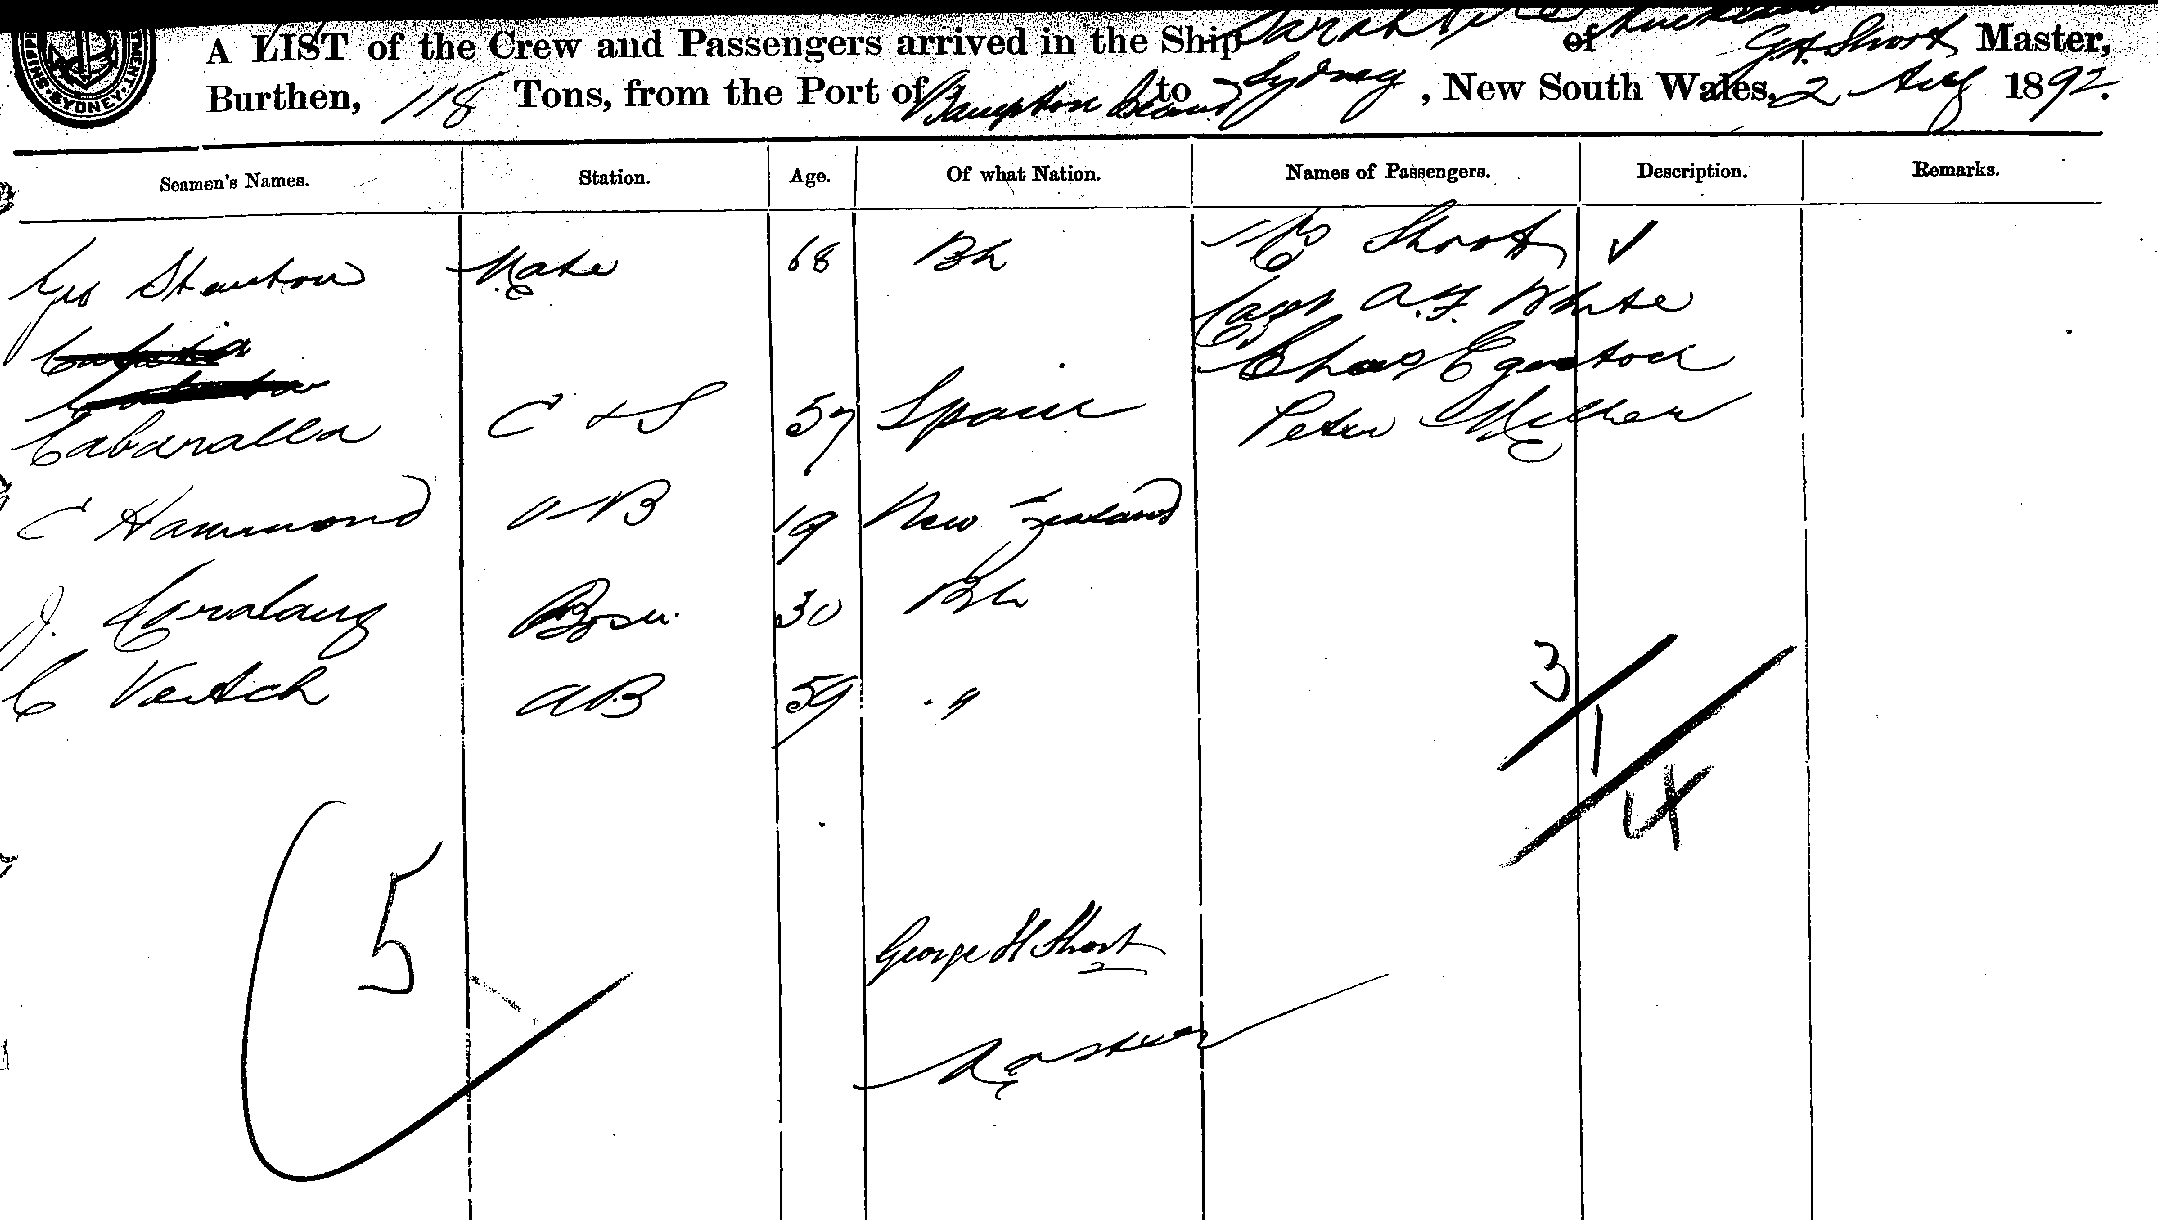 A LIST of the Crew and Passengers arrived in the Ship Sarah of G H Short Master,
Burthen, 118 Tons, from the Port of Bampton Island to Sydney, New South Wales, 2 Aug 1892.
Seamen's Names. Station. Age. Of what Nation. Names of Passengers. Description. Remarks.
Geo Staunton Mate 68 Bh Mrs Short ✓
Capt A.F. White
Chas
Cabanalla C & S 57 Spain Peter Miller
C Hammond AB 19 New Zealand
J. Bosn. 30 Bh
C Veitch AB 59 "
3
1
4
5
George H Short
Master